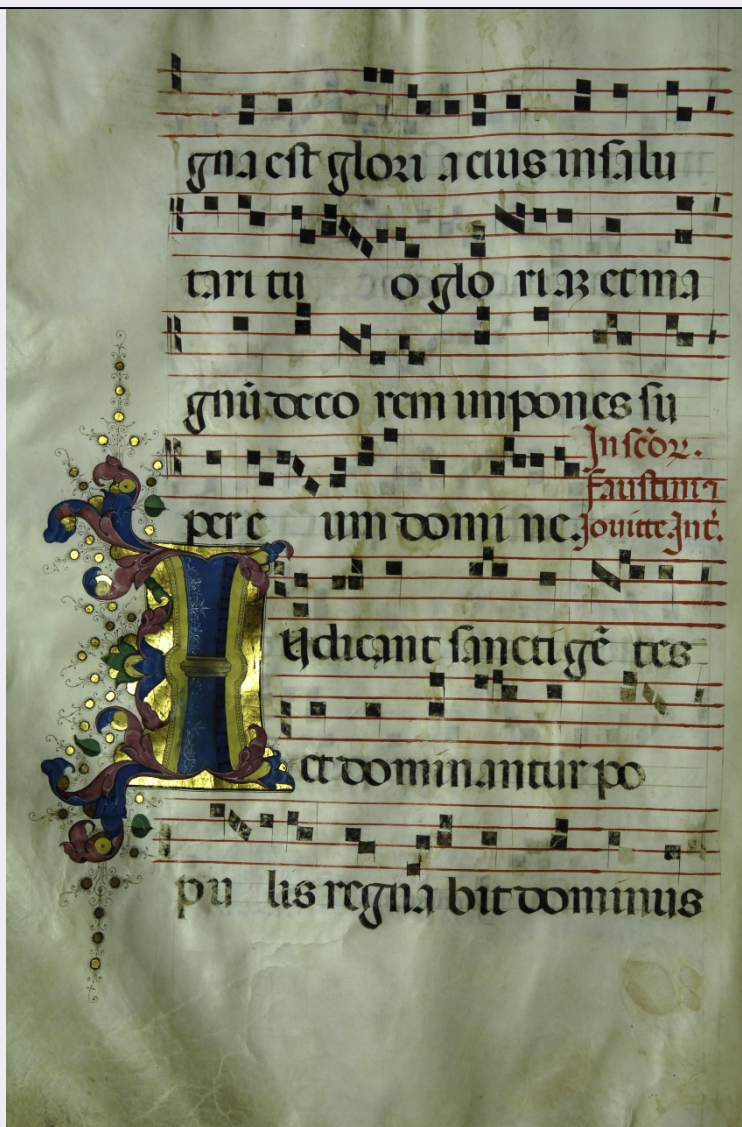 gna est glori a eius in salu
tari tu o glo ri aʒ et ma
gnū deco rem impones su
per e um domi ne. In scōꝝ.
Faustini ⁊
Jovitte. Int̄.
Iudicant sancti gē tes
et dominantur po
pu lis regna bit dominus